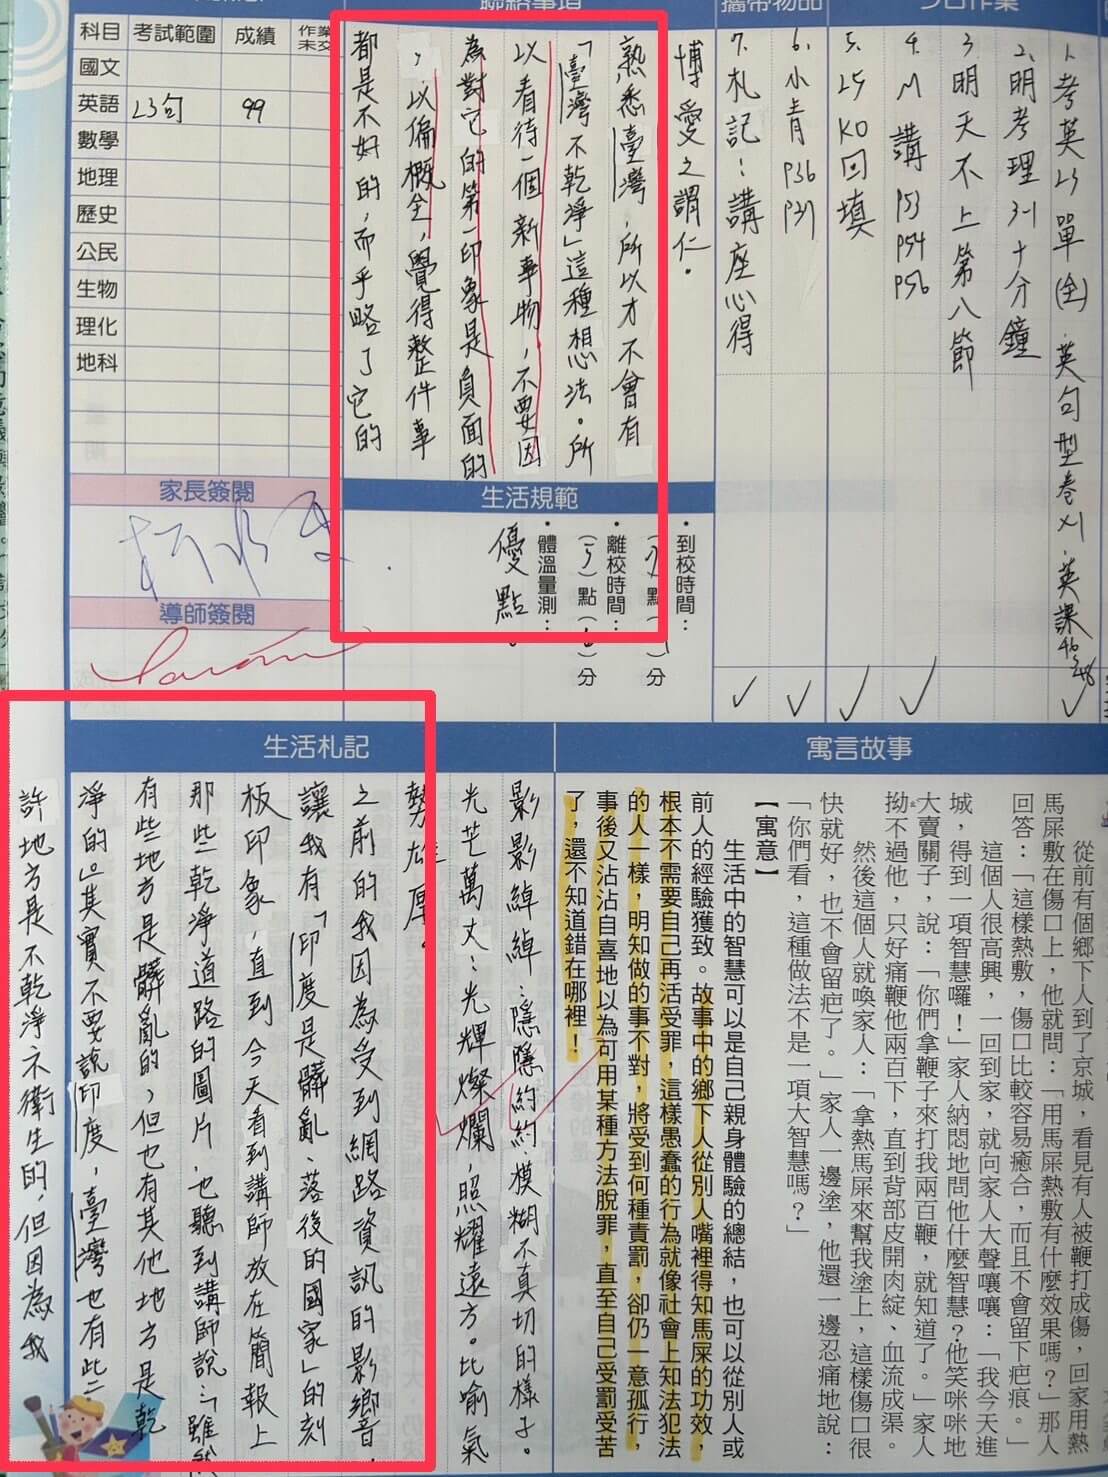 聯絡事項
攜帶物品
今日作業
科目 考試範圍 成績 作業未交
國文
英語 L3句 99
數學
地理
歷史
公民
生物
理化
地科
家長簽閱
導師簽閱
1.考英L3單(全)、英句型卷×1、英課46~48
2.明考理3-1十分鐘
3.明天不上第八節
4.M 講 P53 P54 P56
5.L5 KO回填
6.小青 P36 P37
7.札記:講座心得
博愛之謂仁。
熟悉臺灣,所以才不會有
「臺灣不乾淨」這種想法。所
以看待一個新事物,不要因
為對它的第一印象是負面的
,以偏概全,覺得整件事
都是不好的,而乎略了它的
優點。
生活規範
•到校時間:
(7)點( )分
•離校時間:
(5)點( )分
•體溫量測:
寓言故事
從前有個鄉下人到了京城,看見有人被鞭打成傷,回家用熱
馬屎敷在傷口上,他就問:「用馬屎熱敷有什麼效果嗎?」那人
回答:「這樣熱敷,傷口比較容易癒合,而且不會留下疤痕。」
這個人很高興,一回到家,就向家人大聲嚷嚷:「我今天進
城,得到一項智慧囉!」家人納悶地問他什麼智慧?他笑咪咪地
大賣關子,說:「你們拿鞭子來打我兩百鞭,就知道了。」家人
拗不過他,只好痛鞭他兩百下,直到背部皮開肉綻、血流成渠。
然後這個人就喚家人:「拿熱馬屎來幫我塗上,這樣傷口很
快就好,也不會留疤了。」家人一邊塗,他還一邊忍痛地說:
「你們看,這種做法不是一項大智慧嗎?」
【寓意】
生活中的智慧可以是自己親身體驗的總結,也可以從別人或
前人的經驗獲致。故事中的鄉下人從別人嘴裡得知馬屎的功效,
根本不需要自己再活受罪,這樣愚蠢的行為就像社會上知法犯法
的人一樣,明知做的事不對,將受到何種責罰,卻仍一意孤行,
事後又沾沾自喜地以為可用某種方法脫罪,直至自己受罰受苦
了,還不知道錯在哪裡!
生活札記
影影綽綽:隱隱約約、模糊不真切的樣子。
光芒萬丈:光輝燦爛,照耀遠方。比喻氣
勢雄厚。
之前的我因為受到網路資訊的影響,
讓我有「印度是髒亂、落後的國家」的刻
板印象,直到今天看到講師放在簡報上
那些乾淨道路的圖片,也聽到講師說:「雖然
有些地方是髒亂的,但也有其他地方是乾
淨的。」其實不要說印度,臺灣也有些
許地方是不乾淨不衛生的,但因為我